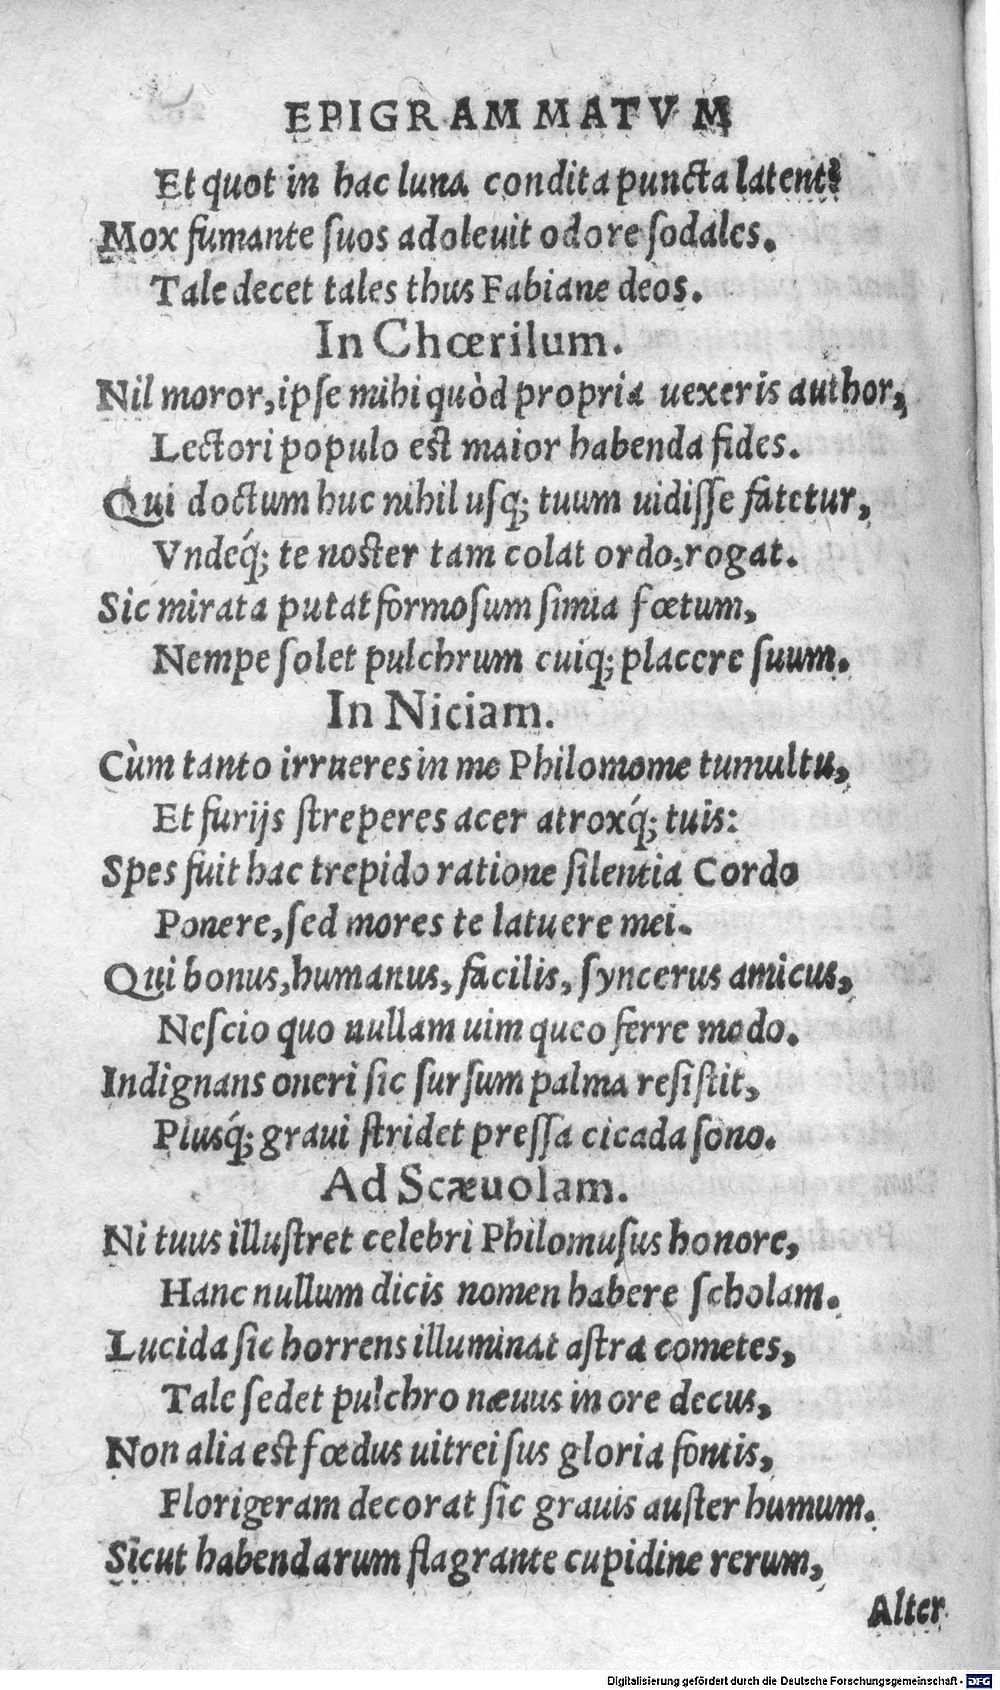 EPIGRAMMATVM
Et quot in hac luna condita puncta latent?
Mox fumante ſuos adoleuit odore ſodales.
Tale decet tales thus Fabiane deos.
In Chœrilum.
Nil moror, ipſe mihi quòd propria uexeris author,
Lectori populo est maior habenda fides.
Qui doctum huc nihil uſq; tuum uidiſſe fatetur,
Vndeq́; te noster tam colat ordo, rogat.
Sic mirata putat formoſum ſimia fœtum,
Nempe ſolet pulchrum cuiq; placere ſuum.
In Niciam.
Cùm tanto irrueres in me Philomome tumultu,
Et furijs ſtreperes acer atroxq́; tuis:
Spes fuit hac trepido ratione ſilentia Cordo
Ponere, ſed mores te latuere mei.
Qui bonus, humanus, facilis, ſyncerus amicus,
Neſcio quo nullam uim queo ferre modo.
Indignans oneri ſic ſurſum palma reſiſtit,
Plusq́; graui ſtridet preſſa cicada ſono.
Ad Scæuolam.
Ni tuus illuſtret celebri Philomuſus honore,
Hanc nullum dicis nomen habere ſcholam.
Lucida ſic horrens illuminat aſtra cometes,
Tale ſedet pulchro næuus in ore decus,
Non alia est fœdus uitrei ſus gloria fontis,
Florigeram decorat ſic grauis auſter humum.
Sicut habendarum flagrante cupidine rerum,
Alter
Digitalisierung gefördert durch die Deutsche Forschungsgemeinschaft - DFG